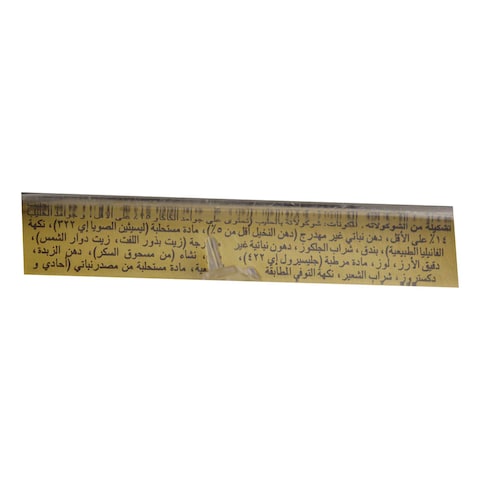 تشكيلة من الشوكولاته. المكونات: شوكولاتة بالحليب
١٤٪ على الأقل، دهن نباتي غير مهدرج (دهن النخيل أقل من ٥٪)، مادة مستحلبة (ليسيثين الصويا إي ٣٢٢)، نكهة
الفانيليا الطبيعية)، بندق، شراب الجلكوز، دهون نباتية غير درجة (زيت بذور اللفت، زيت دوار الشمس)،
دقيق الأرز، لوز، مادة مرطبة (جليسيرول إي ٤٢٢)، نشاء (من مسحوق السكر)، دهن الزبدة،
دكستروز، شراب الشعير، نكهة التوفي المطابقة عية، مادة مستحلبة من مصدر نباتي (أحادي و